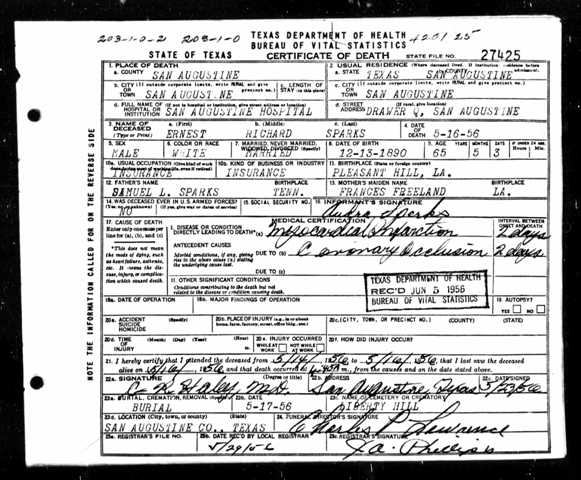 203-1-0-2 203-1-0 TEXAS DEPARTMENT OF HEALTH 4201 25
BUREAU OF VITAL STATISTICS
STATE OF TEXAS CERTIFICATE OF DEATH STATE FILE NO. 27425
NOTE THE INFORMATION CALLED FOR ON THE REVERSE SIDE
1. PLACE OF DEATH 2. USUAL RESIDENCE
a. COUNTY SAN AUGUSTINE a. STATE TEXAS COUNTY SAN AUGUSTINE
b. CITY OR TOWN SAN AUGUST.NE c. LENGTH OF STAY c. CITY OR TOWN SAN AUGUSTINE
d. FULL NAME OF HOSPITAL OR INSTITUTION SAN AUGUSTINE HOSPITAL d. STREET ADDRESS DRAWER Q, SAN AUGUSTINE
3. NAME OF DECEASED a. (First) b. (Middle) c. (Last) 4. DATE OF DEATH
ERNEST RICHARD SPARKS 5-16-56
5. SEX 6. COLOR OR RACE 7. MARRIED, NEVER MARRIED, WIDOWED, DIVORCED 8. DATE OF BIRTH 9. AGE YEARS MONTHS DAYS
MALE WHITE MARRIED 12-13-1890 65 5 3
10a. USUAL OCCUPATION 10b. KIND OF BUSINESS OR INDUSTRY 11. BIRTHPLACE (State or foreign country)
INSURANCE INSURANCE PLEASANT HILL, LA.
12. FATHER'S NAME BIRTHPLACE 13. MOTHER'S MAIDEN NAME BIRTHPLACE
SAMUEL L. SPARKS TENN. FRANCES FREELAND LA.
14. WAS DECEASED EVER IN U.S. ARMED FORCES? 15. SOCIAL SECURITY NO. 16. INFORMANT'S SIGNATURE
NO Sparks
17. CAUSE OF DEATH MEDICAL CERTIFICATION INTERVAL BETWEEN ONSET AND DEATH
Enter only one cause per line for (a), (b), and (c) I. DISEASE OR CONDITION DIRECTLY LEADING TO DEATH (a) Myocardial Infarction 2 days
*This does not mean the mode of dying, such as heart failure, asthenia, etc. It means the disease, injury, or complication which caused death.
ANTECEDENT CAUSES
Morbid conditions, if any, giving rise to the above cause (a) stating the underlying cause last.
DUE TO (b) Coronary Occlusion 2 days
DUE TO (c)
II. OTHER SIGNIFICANT CONDITIONS
Conditions contributing to the death but not related to the disease or condition causing death.
TEXAS DEPARTMENT OF HEALTH
REC'D JUN 5 1956
BUREAU OF VITAL STATISTICS
18a. DATE OF OPERATION 18b. MAJOR FINDINGS OF OPERATION 19. AUTOPSY? YES NO
20a. ACCIDENT SUICIDE HOMICIDE 20b. PLACE OF INJURY (e.g., in or about home, farm, factory, street, office bldg., etc.) 20c. (CITY, TOWN, OR PRECINCT NO.) (COUNTY) (STATE)
20d. TIME OF INJURY (Month) (Day) (Year) (Hour) 20e. INJURY OCCURRED WHILE AT WORK NOT WHILE AT WORK 20f. HOW DID INJURY OCCUR?
21. I hereby certify that I attended the deceased from 5/14/1956, to 5/16/1956, that I last saw the deceased
alive on 5/16/1956 and that death occurred at m., from the causes and on the date stated above.
22a. SIGNATURE (Degree or title) 22b. ADDRESS 22c. DATE SIGNED
Haley M.D. San Augustine, Texas 5/29/56
23a. BURIAL, CREMATION, REMOVAL 23b. DATE 23c. NAME OF CEMETERY OR CREMATORY
BURIAL 5-17-56 LIBERTY HILL
23d. LOCATION (City, town, or county) (State) 24. FUNERAL DIRECTOR'S SIGNATURE
SAN AUGUSTINE CO., TEXAS Charles Lawrence
25a. REGISTRAR'S FILE NO. 25b. DATE REC'D BY LOCAL REGISTRAR 25c. REGISTRAR'S SIGNATURE
5/29/56